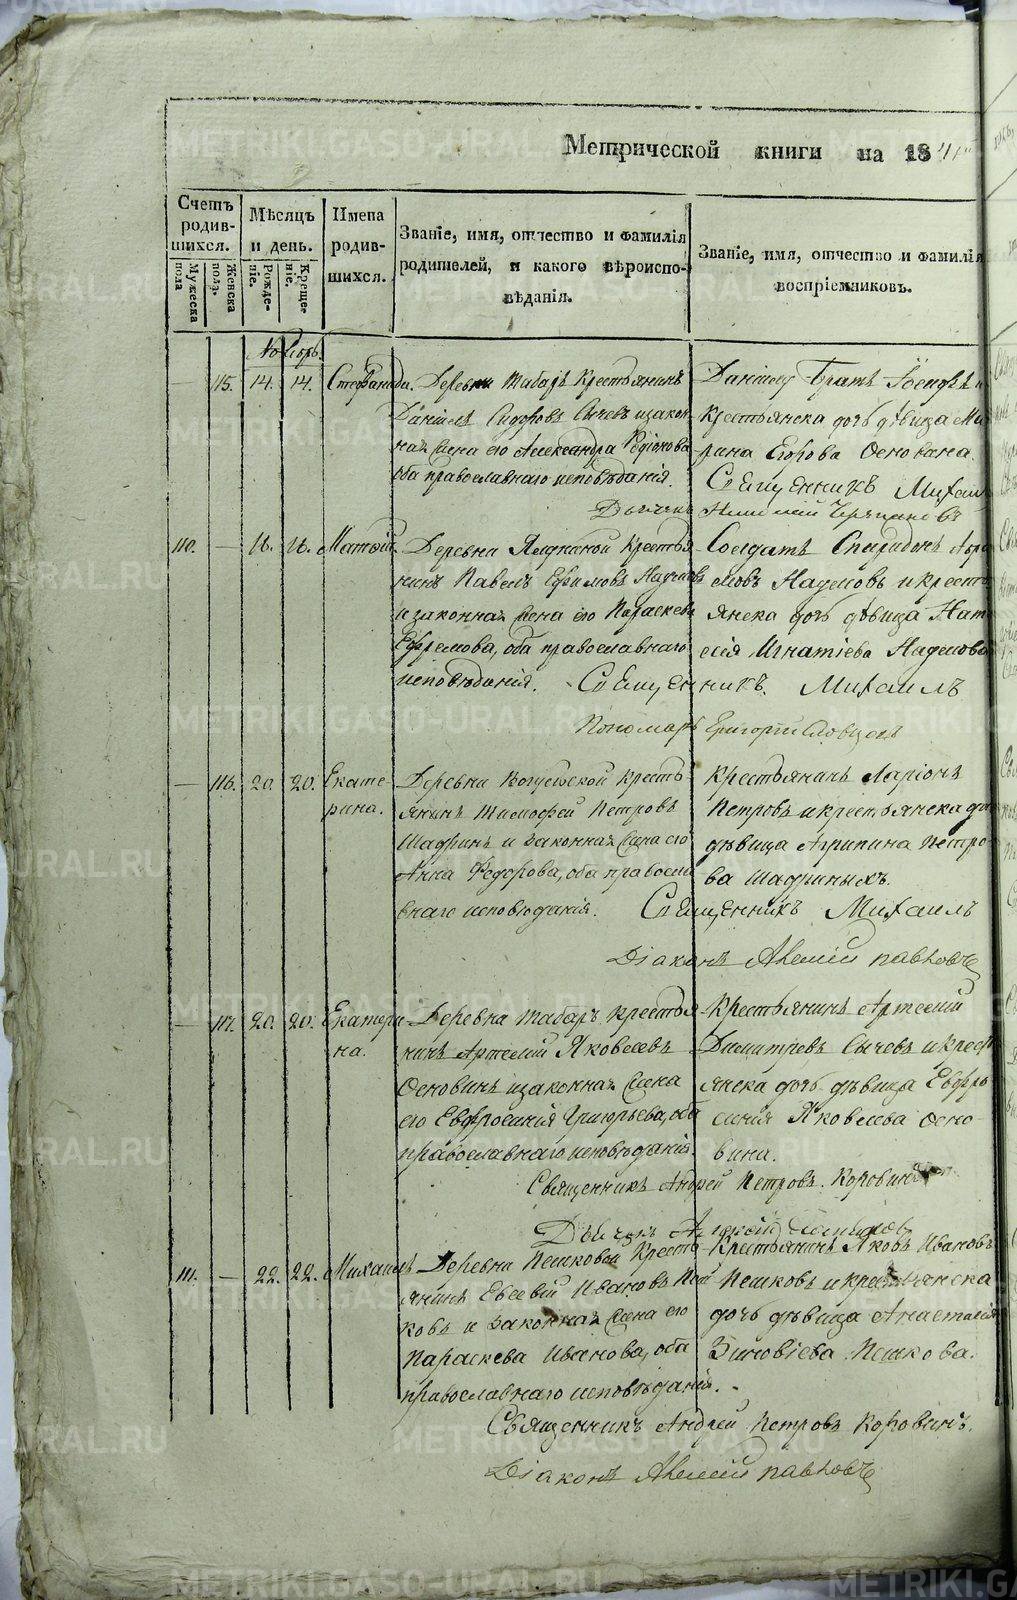 Метрической книги на 184
Счетъ родившихся.
Мужеска пола
Женска пола.
Мѣсяцъ и день.
Рожденіе.
Крещеніе.
Имена родившихся.
Званіе, имя, отчество и фамилія
родителей, и какого вѣроиспо-
вѣданія.
Званіе, имя, отчество и фамилія
воспріемниковъ.
Ноябрь.
115. 14. 14. Стефанида. Деревни Табаръ Крестьянинъ
Даніилъ Сидоровъ Сычевъ и закон-
ная жена его Александра Родіонова
оба православнаго исповѣданія.
Даніилу Братъ Іосифъ и
крестьянска дочь дѣвица Ма-
рина Егорова Основина.
Священникъ Михаилъ
Дьячекъ
110. — 16. 16. Матѳій. Деревни Крестья-
нинъ Павелъ Ефимовъ Наумовъ
и законная жена его Параскева
Ефремова, оба православнаго
исповѣданія.
Солдатъ Спиридонъ
Наумовъ и крест
янска дочь дѣвица Нат
елія Игнатіева Наумова
Священникъ Михаилъ
Пономарь Григорій Словцовъ
— 116. 20. 20. Екате-
рина.
Деревни Кресть-
янинъ Тимофей Петровъ
Шадринъ и законная жена его
Анна Федорова, оба правосла
внаго исповѣданія.
Крестьянинъ Ларіонъ
Петровъ и крестьянска до
дѣвица Агрипина Петро
ва Шадриныхъ.
Священникъ Михаилъ
Діаконъ Алексій Павловъ
— 117. 20. 20. Екатери
на.
Деревни Табаръ крестья-
нинъ Артемій Яковлевъ
Основинъ и законная жена
его Евфросинія Григорьева, оба
православнаго исповѣданія.
Крестьянинъ Артемій
Димитріевъ Сычевъ и крест
янска дочь дѣвица Евфро
синія Яковлева Осно-
вина.
Священникъ Андрей Петровъ Коровинъ
Дьячекъ Алексій
111. — 22. 22. Михаилъ Деревни Пешковой Кресть
янинъ Евсевій Ивановъ Пеш
ковъ и законная жена его
Параскева Иванова, оба
православнаго исповѣданія.
Крестьянинъ Яковъ Ивановъ
Пешковъ и крестьянска
дочь дѣвица Анастасія
Зиновіева Пешкова.
Священникъ Андрей Петровъ Коровинъ.
Діаконъ Алексій Павловъ
METRIKI.GASO-URAL.RU